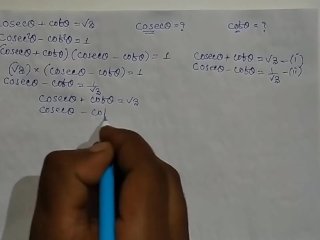 cosecθ + cotθ = √3    cosecθ = ?    cotθ = ?
cosec²θ - cot²θ = 1
(cosecθ + cotθ) (cosecθ - cotθ) = 1    cosecθ + cotθ = √3 - (i)
(√3) × (cosecθ - cotθ) = 1    cosecθ - cotθ = 1/√3 - (ii)
cosecθ - cotθ = 1/√3
cosecθ + cotθ = √3
cosecθ - cot